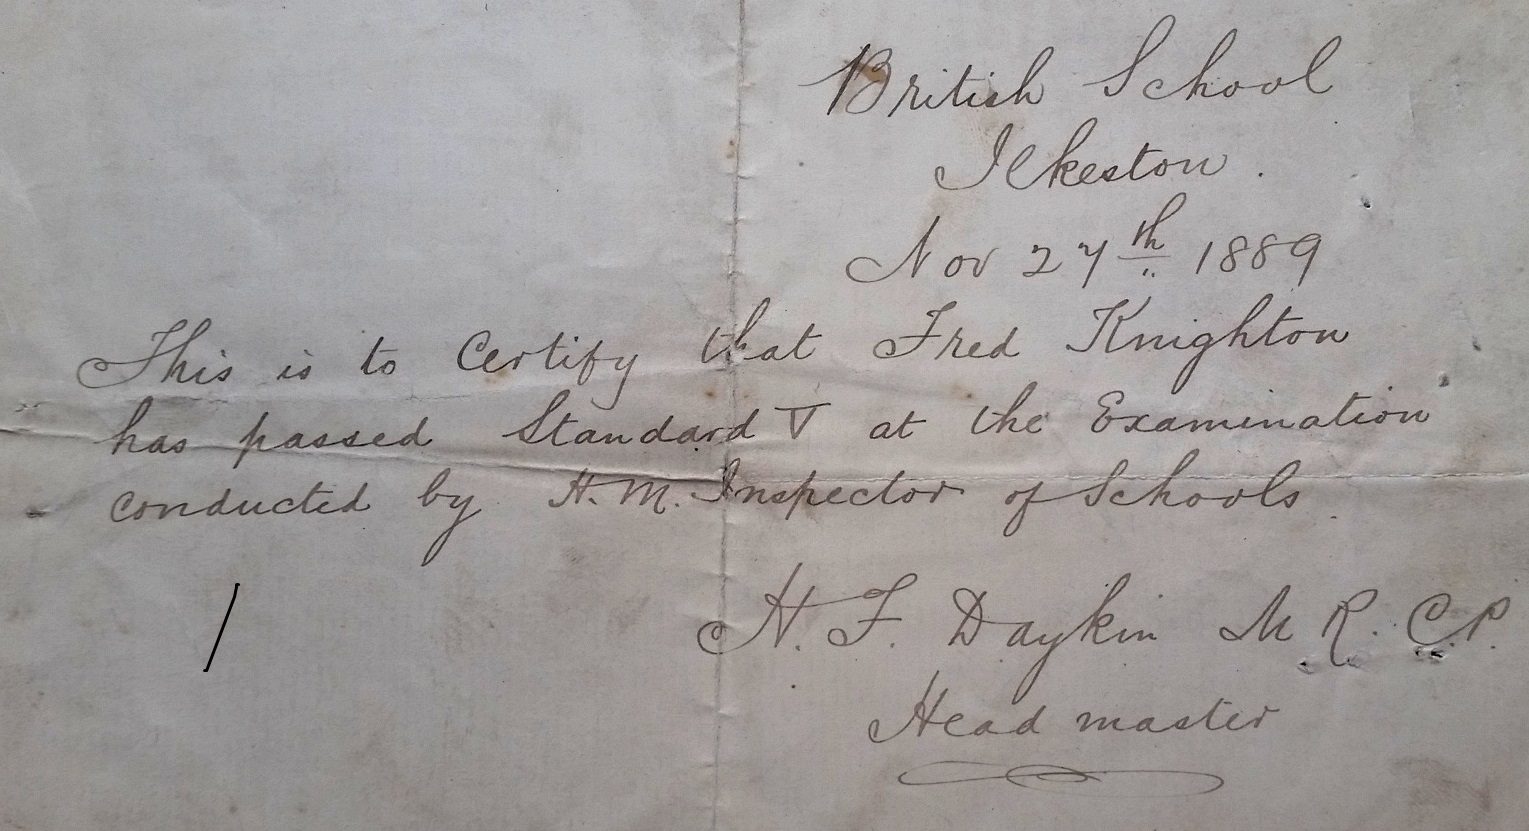 British School
Ilkeston.
Nov 27th 1889
This is to Certify that Fred Knighton
has passed Standard V at the Examination
conducted by H.M. Inspector of Schools.
H. F. Daykin M.R.C.P.
Head master